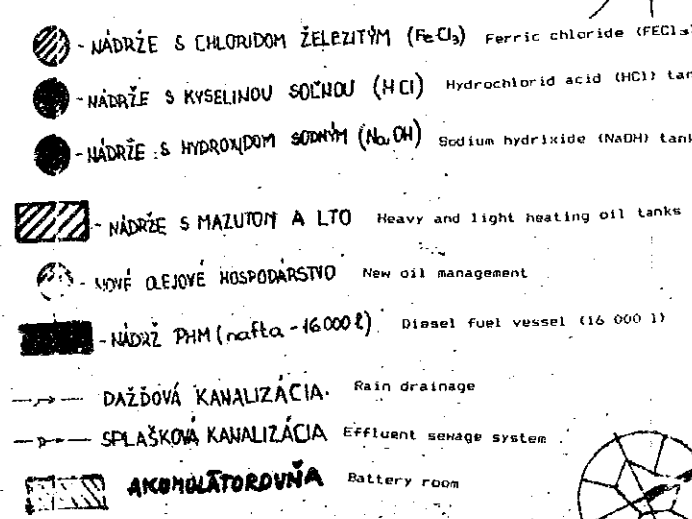 - NÁDRŽE S CHLORIDOM ŽELEZITÝM (FeCl₃) Ferric chloride (FECl₃)
- NÁDRŽE S KYSELINOU SOĽNOU (HCl) Hydrochlorid acid (HCl) tan
- NÁDRŽE S HYDROXIDOM SODNÝM (NaOH) Sodium hydrixide (NaOH) tank
- NÁDRŽE S MAZUTOM A LTO Heavy and light heating oil tanks
- NOVÉ OLEJOVÉ HOSPODÁRSTVO New oil management
- NÁDRŽ PHM (nafta - 16.000 l) Diesel fuel vessel (16 000 l)
DAŽĎOVÁ KANALIZÁCIA Rain drainage
SPLAŠKOVÁ KANALIZÁCIA Effluent sewage system
AKUMULÁTOROVŇA Battery room